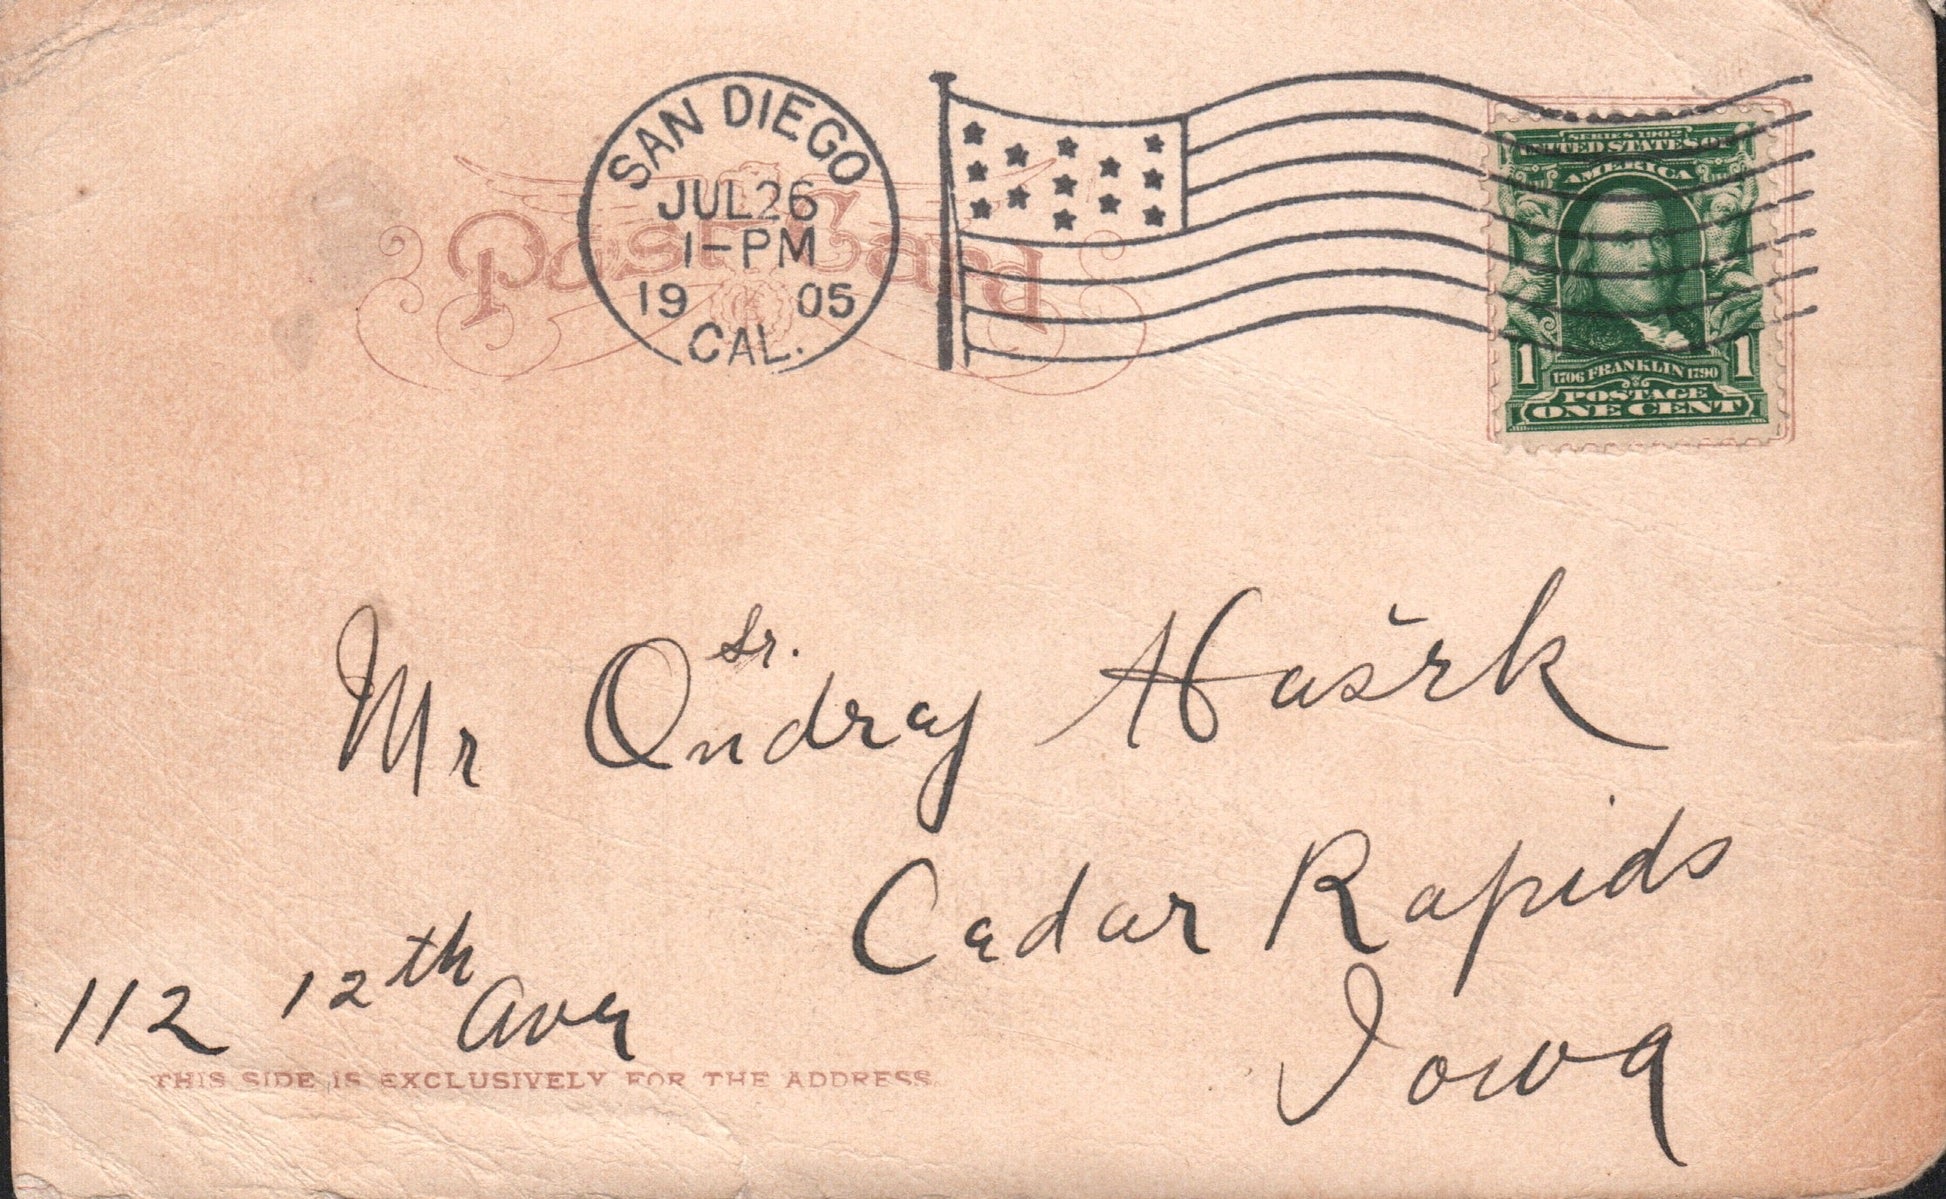 SAN DIEGO
JUL 26
1-PM
19 05
CAL.
Post Card
SERIES 1902
UNITED STATES OF
AMERICA
1706 FRANKLIN 1790
1 1
POSTAGE
ONE CENT
Mr Ondrej Sr. Hašek
Cedar Rapids
Iowa
112 12th Ave
THIS SIDE IS EXCLUSIVELY FOR THE ADDRESS.